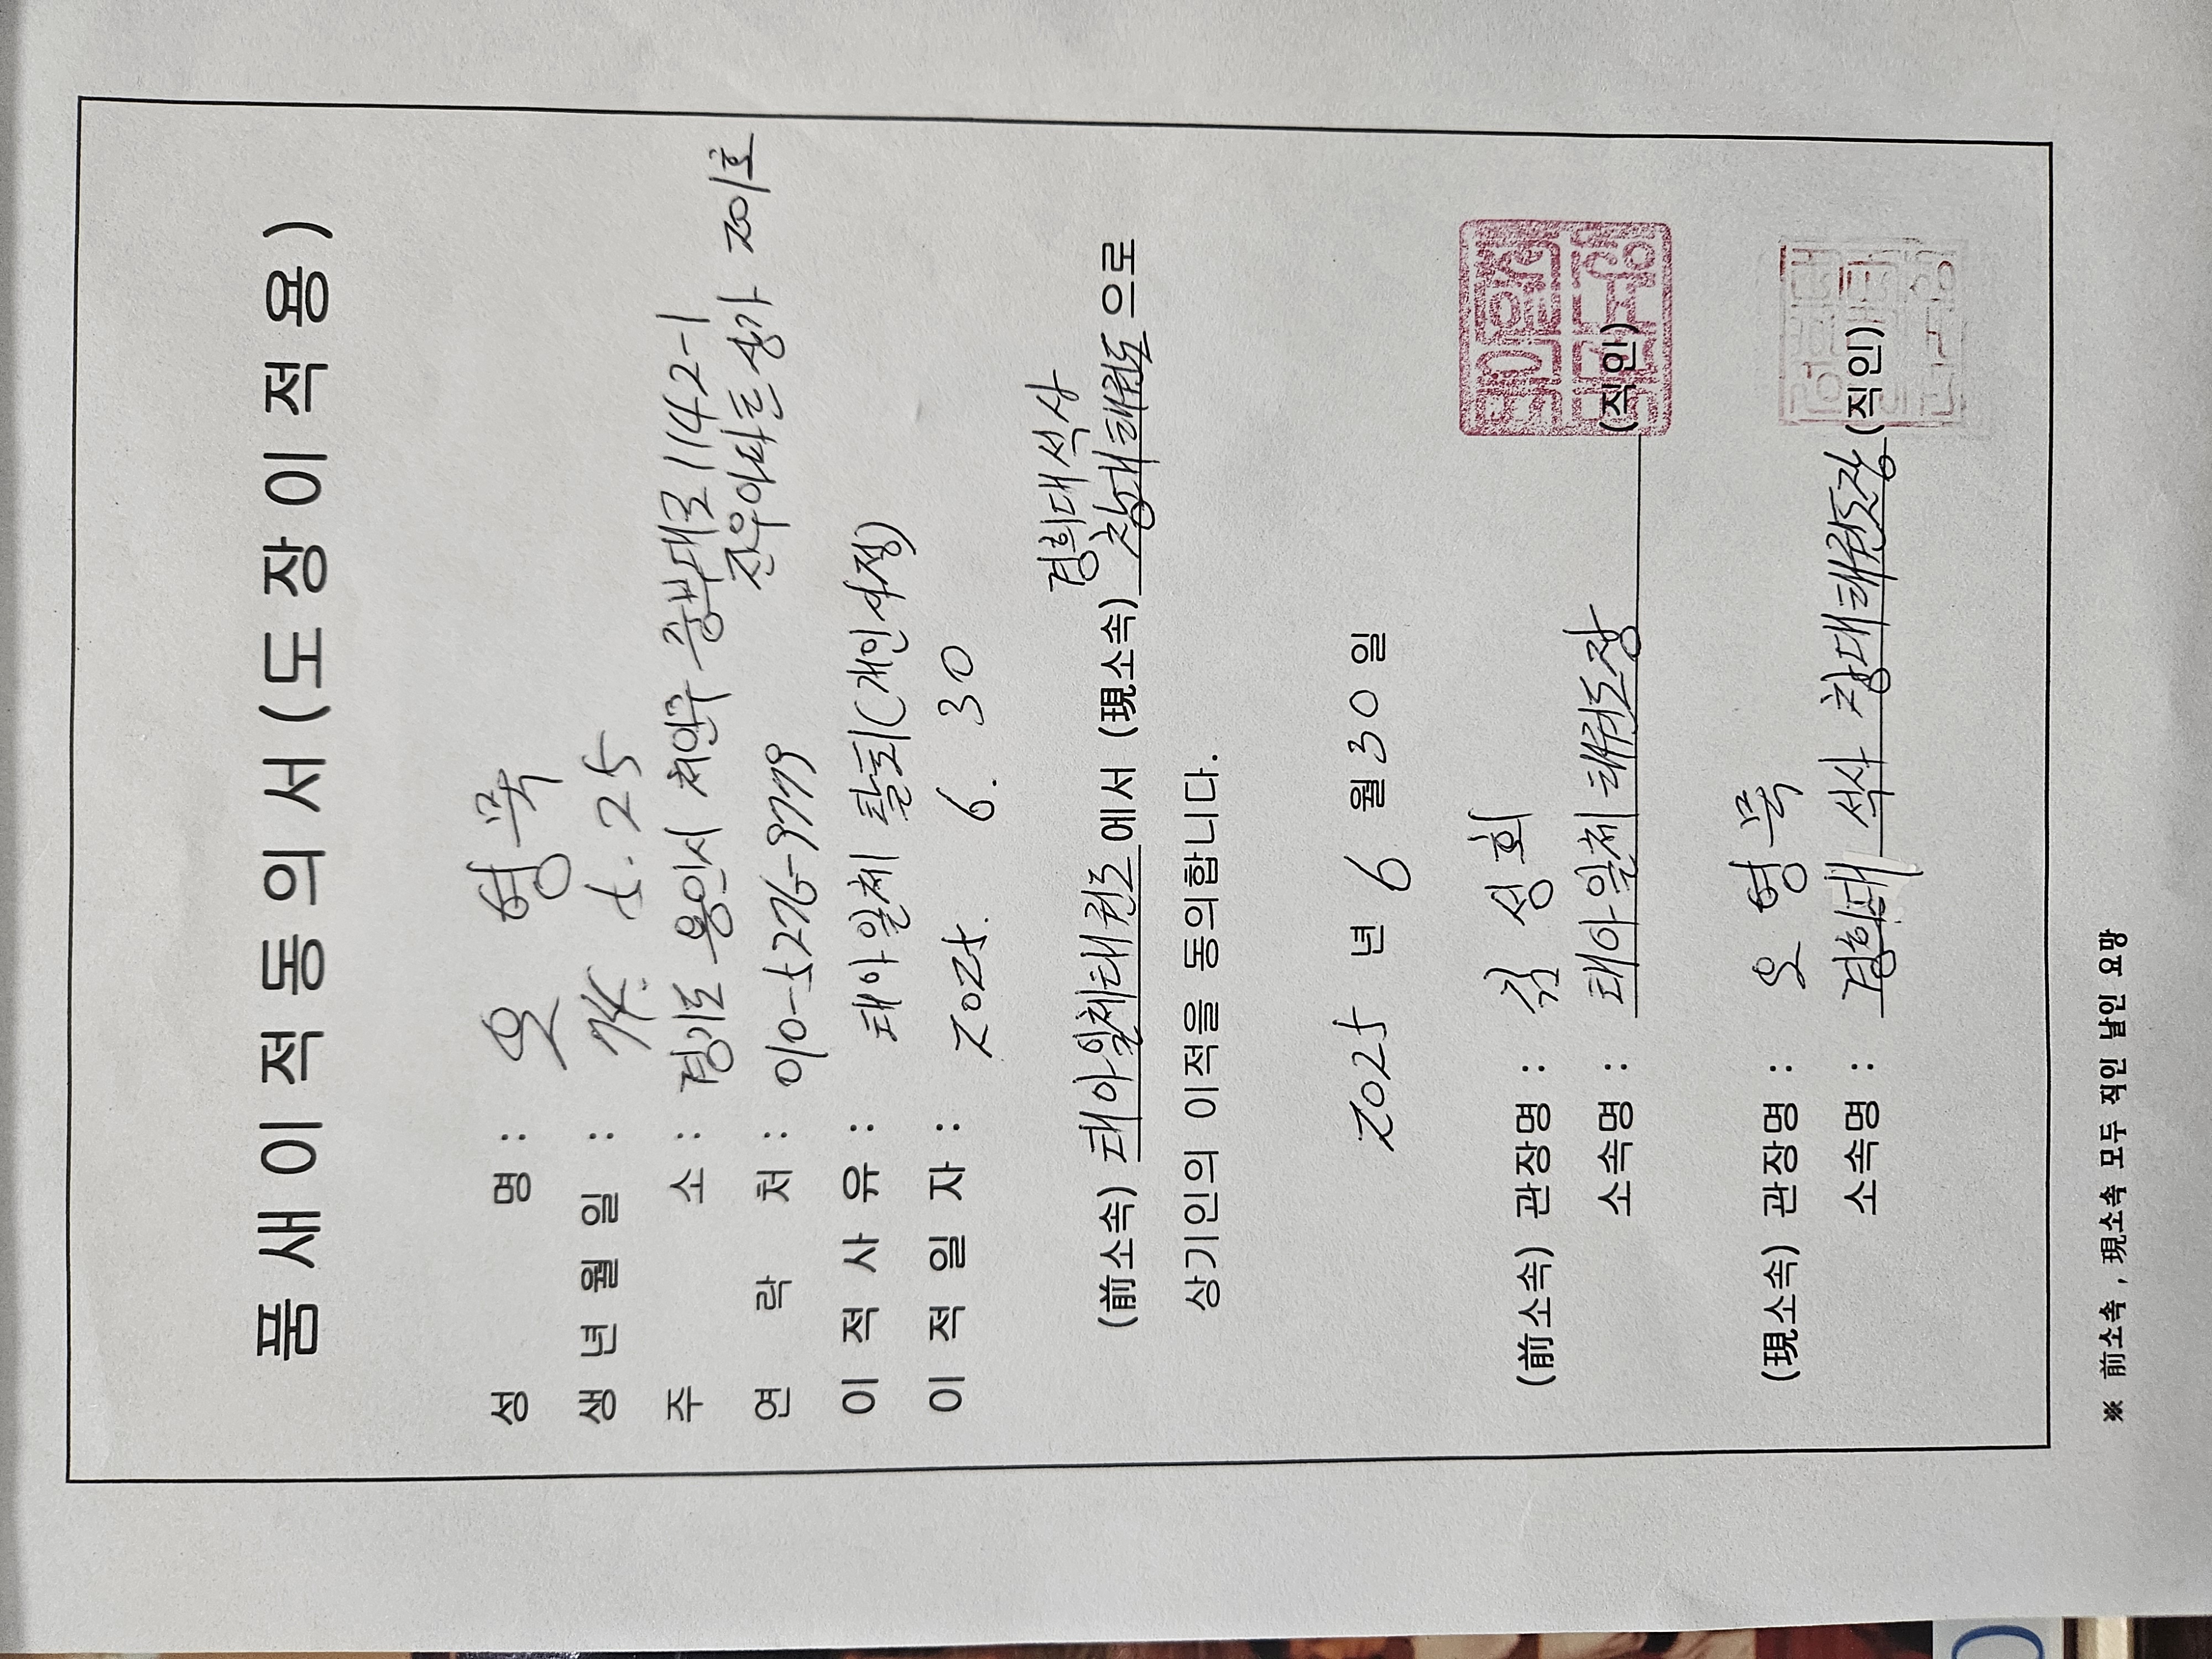 품 새 이 적 동 의 서 ( 도 장 이 적 용 )
성 명 : 오 형 묵
생 년 월 일 : 74. 5. 25
주 소 : 경기도 용인시 처인구 중부대로 1142-1
진우아파트상가 201호
연 락 처 : 010-5276-9779
이 적 사 유 : 태아일체 탈퇴(개인사정)
이 적 일 자 : 2025. 6. 30
경희대석사
(前소속) 태아일체태권도에서 (現소속) 창대태권도으로
상기인의 이적을 동의합니다.
2025 년 6 월 30 일
(前소속) 관장명 : 김 성 회
소속명 : 태아일체 태권도장 (직인)
(現소속) 관장명 : 오 형 묵
소속명 : 경희대 석사 창대태권도장 (직인)
※ 前소속 , 現소속 모두 직인 날인 요망